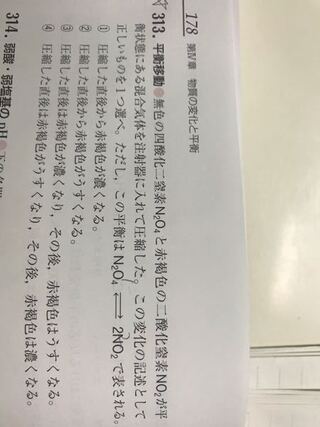 178 第Ⅳ章 物質の変化と平衡
313. 平衡移動●無色の四酸化二窒素N₂O₄と赤褐色の二酸化窒素NO₂が平
衡状態にある混合気体を注射器に入れて圧縮した。この変化の記述として
正しいものを1つ選べ。ただし，この平衡は N₂O₄ ⇄ 2NO₂ で表される。
① 圧縮した直後から赤褐色が濃くなる。
② 圧縮した直後から赤褐色がうすくなる。
③ 圧縮した直後は赤褐色が濃くなり，その後，赤褐色はうすくなる。
④ 圧縮した直後は赤褐色がうすくなり，その後，赤褐色は濃くなる。
314. 弱酸・弱塩基の pH